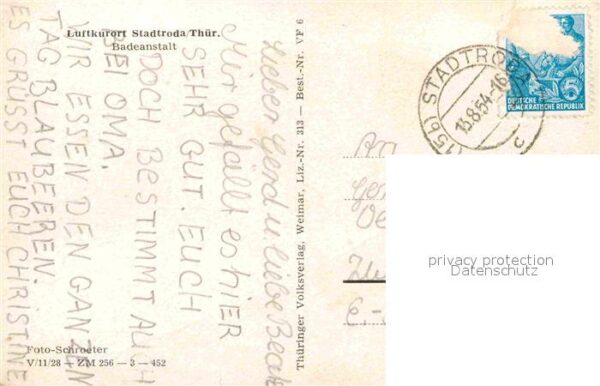 Luftkurort Stadtroda/Thür.
Badeanstalt
Lieber Gerd u. liebe Beate
Mir gefällt es hier
SEHR GUT. EUCH
DOCH BESTIMMT AUCH
BEI OMA.
WIR ESSEN DEN GANZEN
TAG BLAUBEEREN.
ES GRÜSST EUCH CHRISTINE
Foto-Schroeter
V/11/28 — ZM 256 — 3 — 452
Thüringer Volksverlag, Weimar, Liz.-Nr. 313 — Best.-Nr. VF 6
(15b) STADTRODA
13.8.54-16
c
5
DEUTSCHE
DEMOKRATISCHE REPUBLIK
privacy protection
Datenschutz